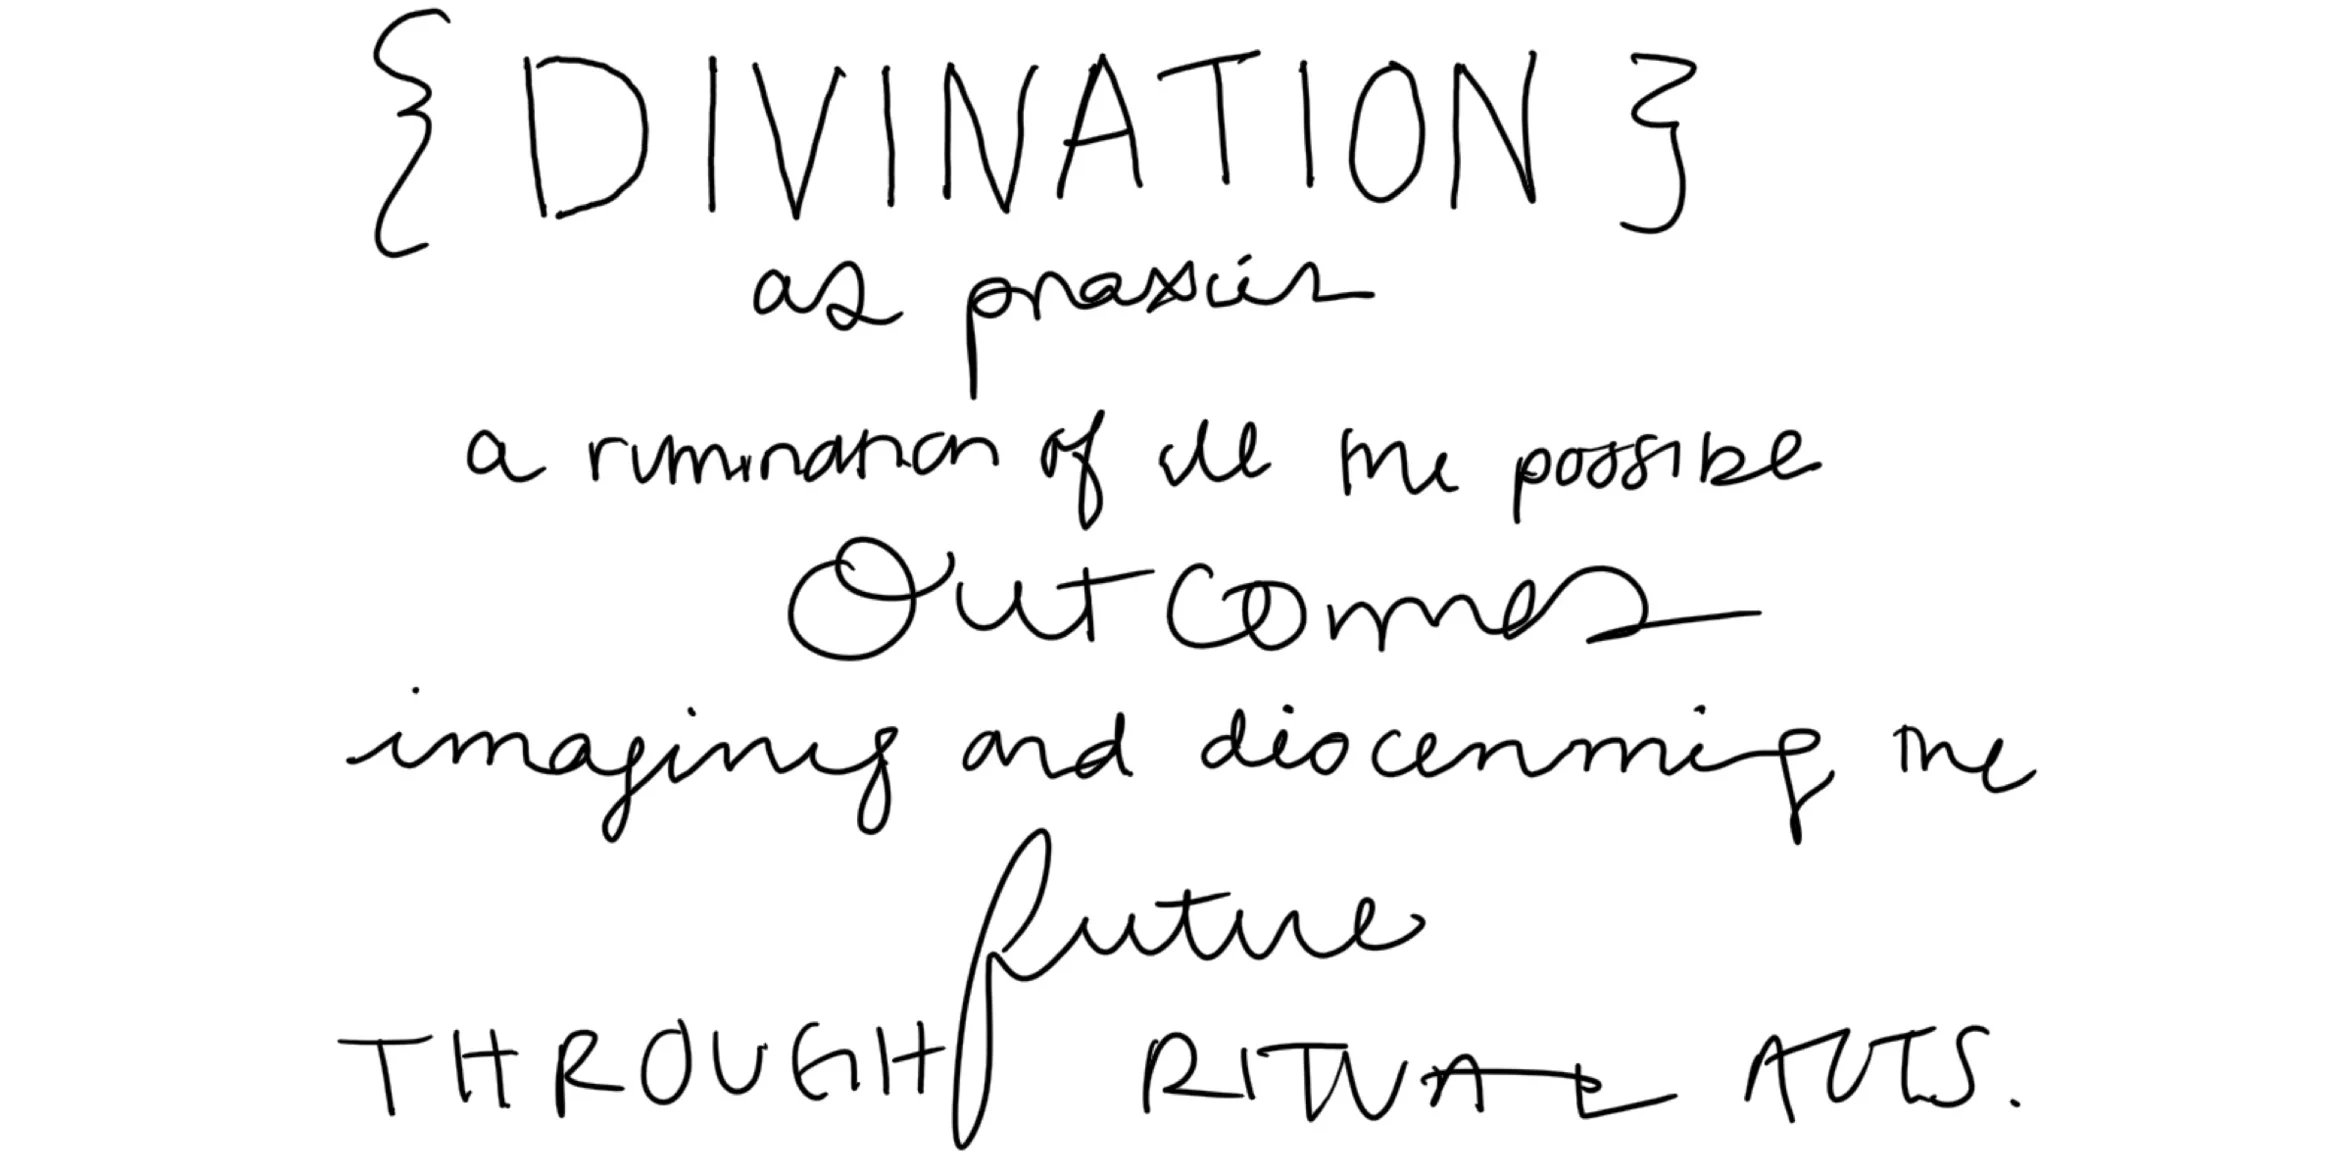 { DIVINATION }
as praxis
a rumination of all the possible
Outcomes
imaging and discerning the
future
THROUGH RITUAL ACTS.